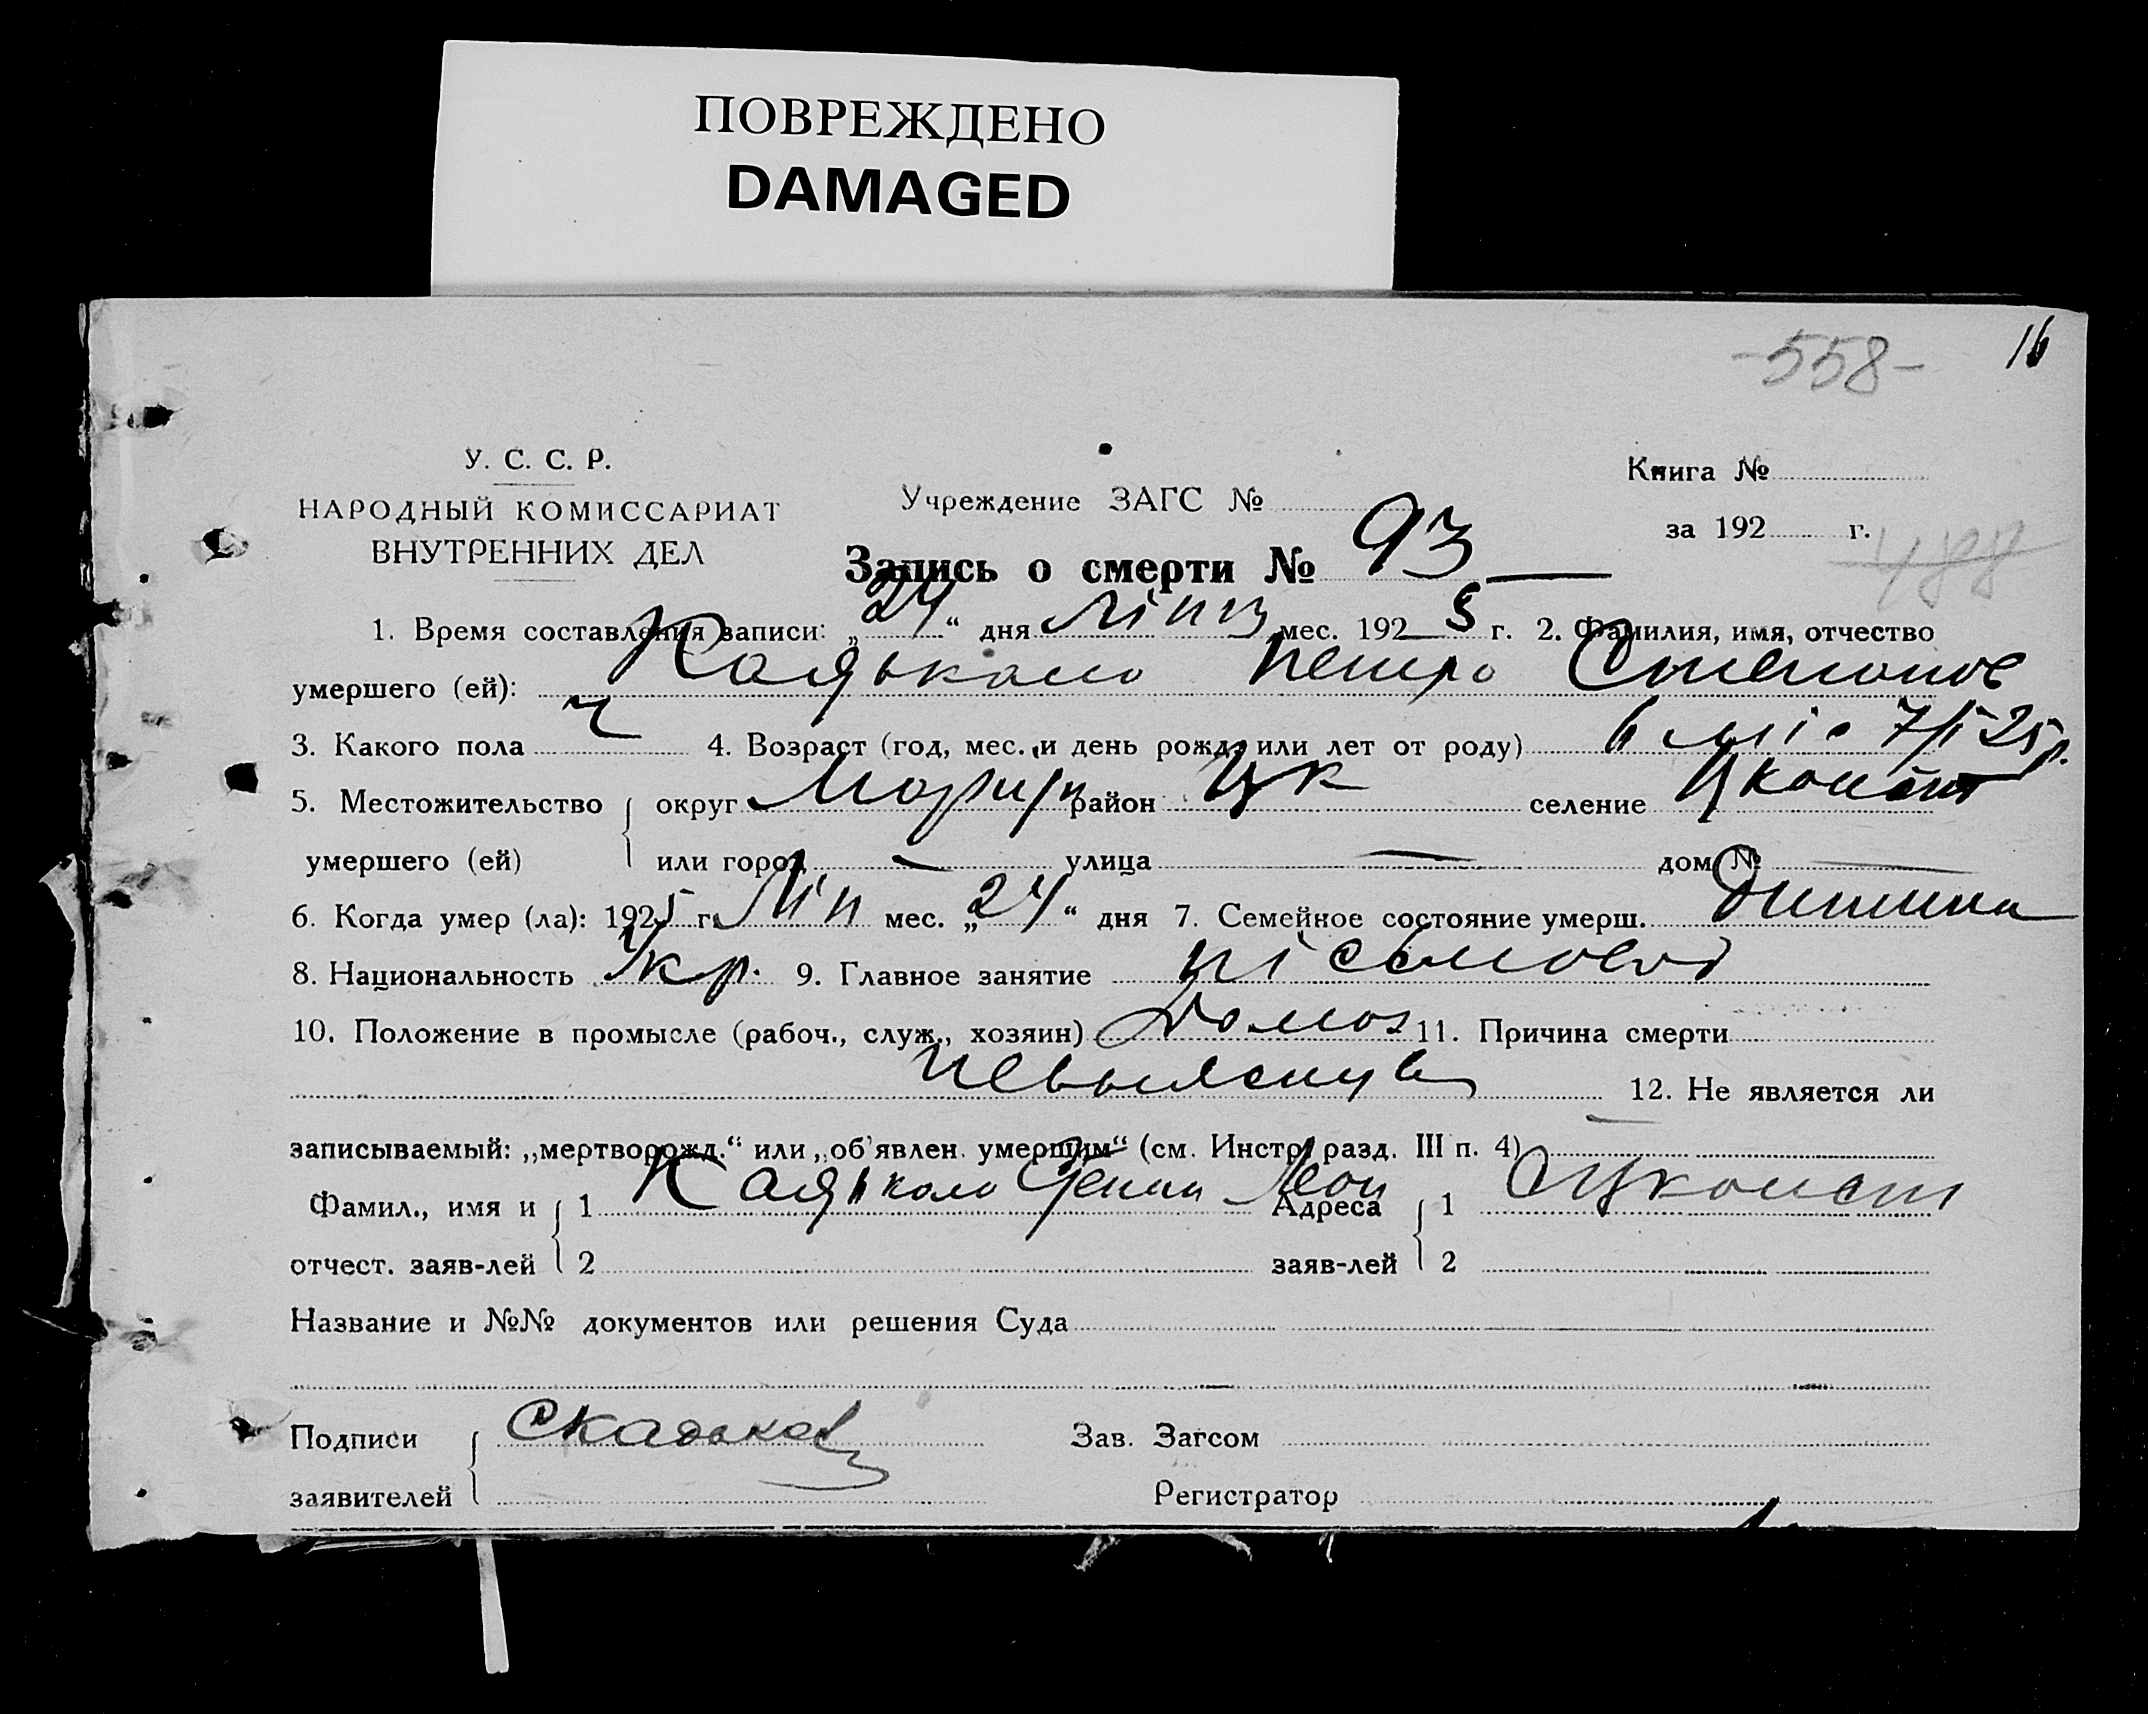 ПОВРЕЖДЕНО
DAMAGED
-558- 16
У. С. С. Р.
НАРОДНЫЙ КОМИССАРИАТ
ВНУТРЕННИХ ДЕЛ
Учреждение ЗАГС №
Книга №
за 192 г.
488
Запись о смерти № 93
1. Время составления записи: „24“ дня Ліпц мес. 1925 г. 2. Фамилия, имя, отчество
умершего (ей): Кадькало Петро Степанов
3. Какого пола ч 4. Возраст (год, мес. и день рожд. или лет от роду) 6 міс 7/I 25 р.
5. Местожительство округ Маріуп район Цк селение Цконст
умершего (ей) или город — улица — дом № —
6. Когда умер (ла): 1925 г. Ліп мес. „24“ дня 7. Семейное состояние умерш. Дитина
8. Национальность Укр. 9. Главное занятие
10. Положение в промысле (рабоч., служ., хозяин) 11. Причина смерти
12. Не является ли
записываемый: „мертворожд.“ или „об'явлен. умершим“ (см. Инстр. разд. III п. 4)
Фамил., имя и 1 Кадькало Степан Адреса 1 Сцконст
отчест. заяв-лей 2 заяв-лей 2
Название и №№ документов или решения Суда
Подписи Зав. Загсом
заявителей Регистратор